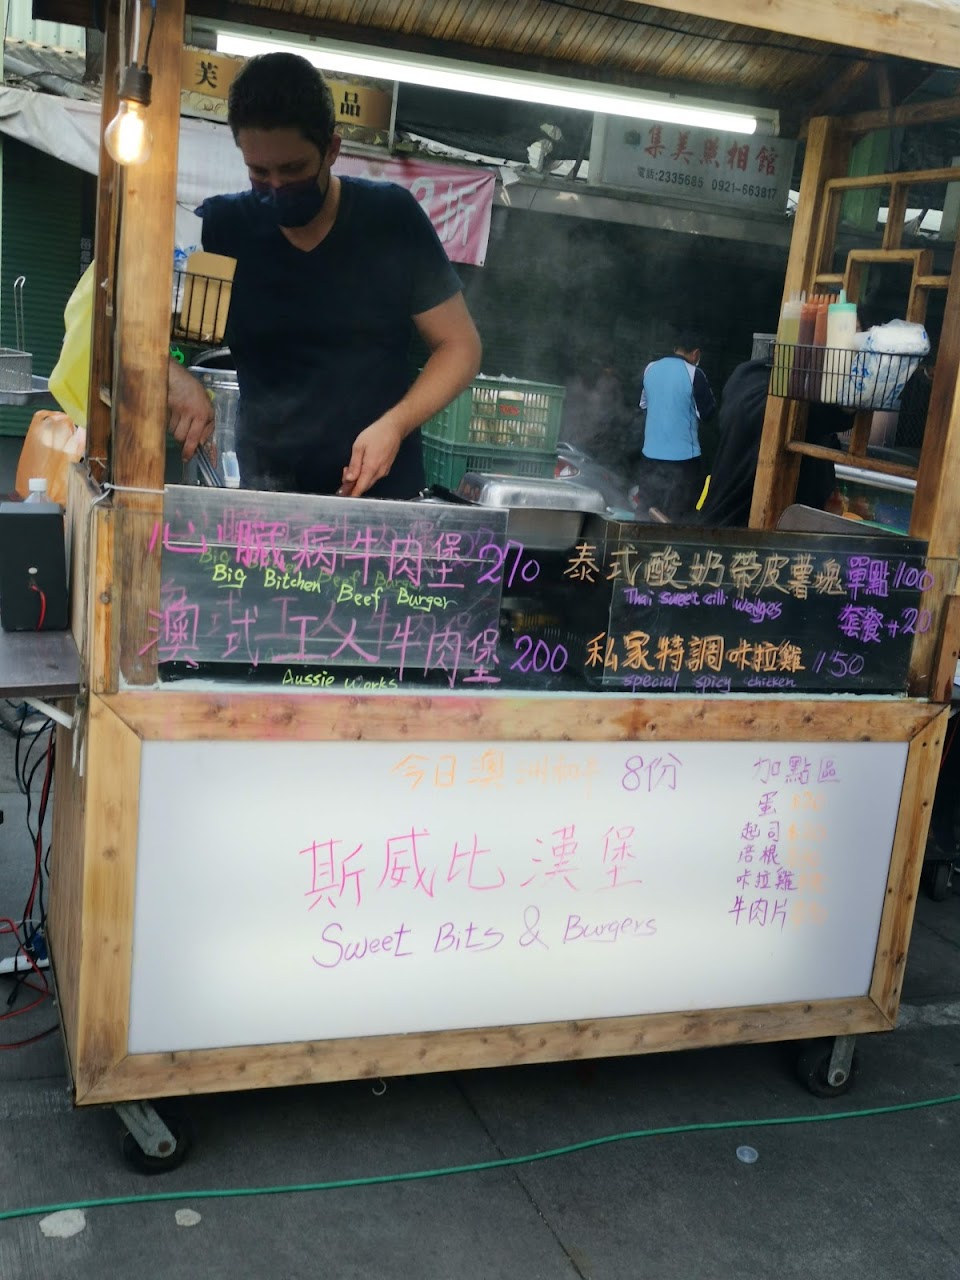 芙
品
集美照相館
電話:2335685 0921-663817
折
心臟病牛肉堡 270
Big Bitchen Beef Burger
澳式工人牛肉堡 200
Aussie works
泰式酸奶帶皮薯塊 單點100
Thai sweet cilli wedges 套餐+20
私家特調咔拉雞 150
special spicy chicken
今日澳洲和牛 8份
斯威比漢堡
Sweet Bits & Burgers
加點區
蛋
起司
培根
咔拉雞
牛肉片